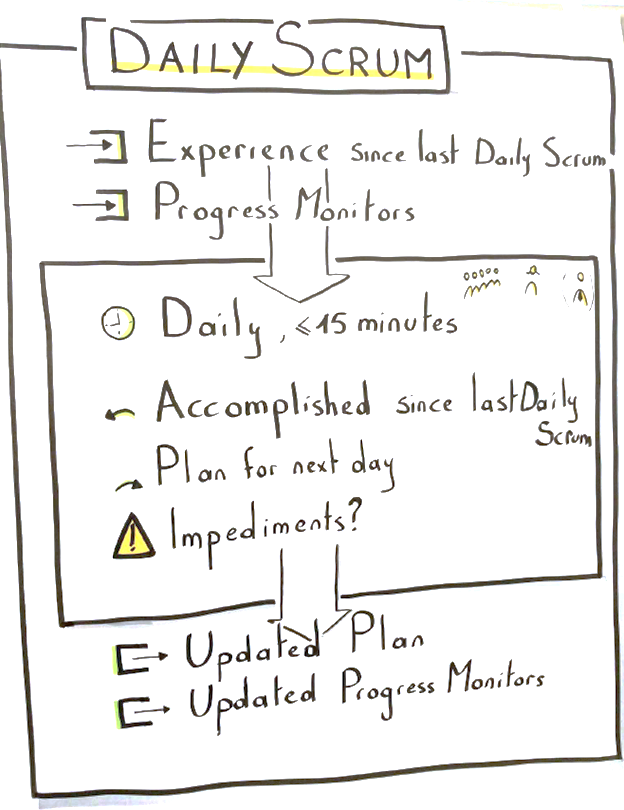 DAILY SCRUM
Experience since last Daily Scrum
Progress Monitors
Daily, ≤15 minutes
Accomplished since last Daily
Scrum
Plan for next day
Impediments?
Updated Plan
Updated Progress Monitors